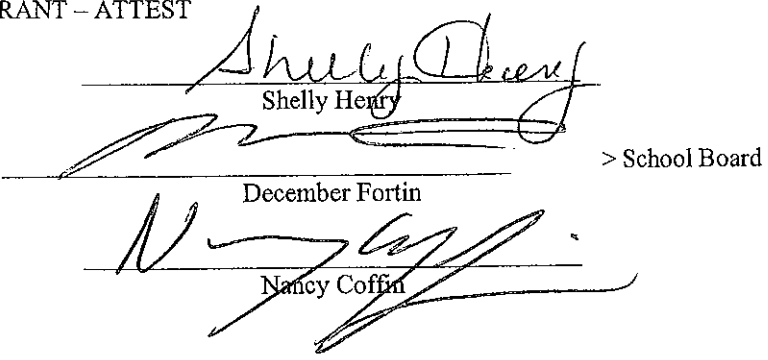 RANT – ATTEST
Shelly Henry
Shelly Henry
> School Board
December Fortin
Nancy Coffin
Nancy Coffin